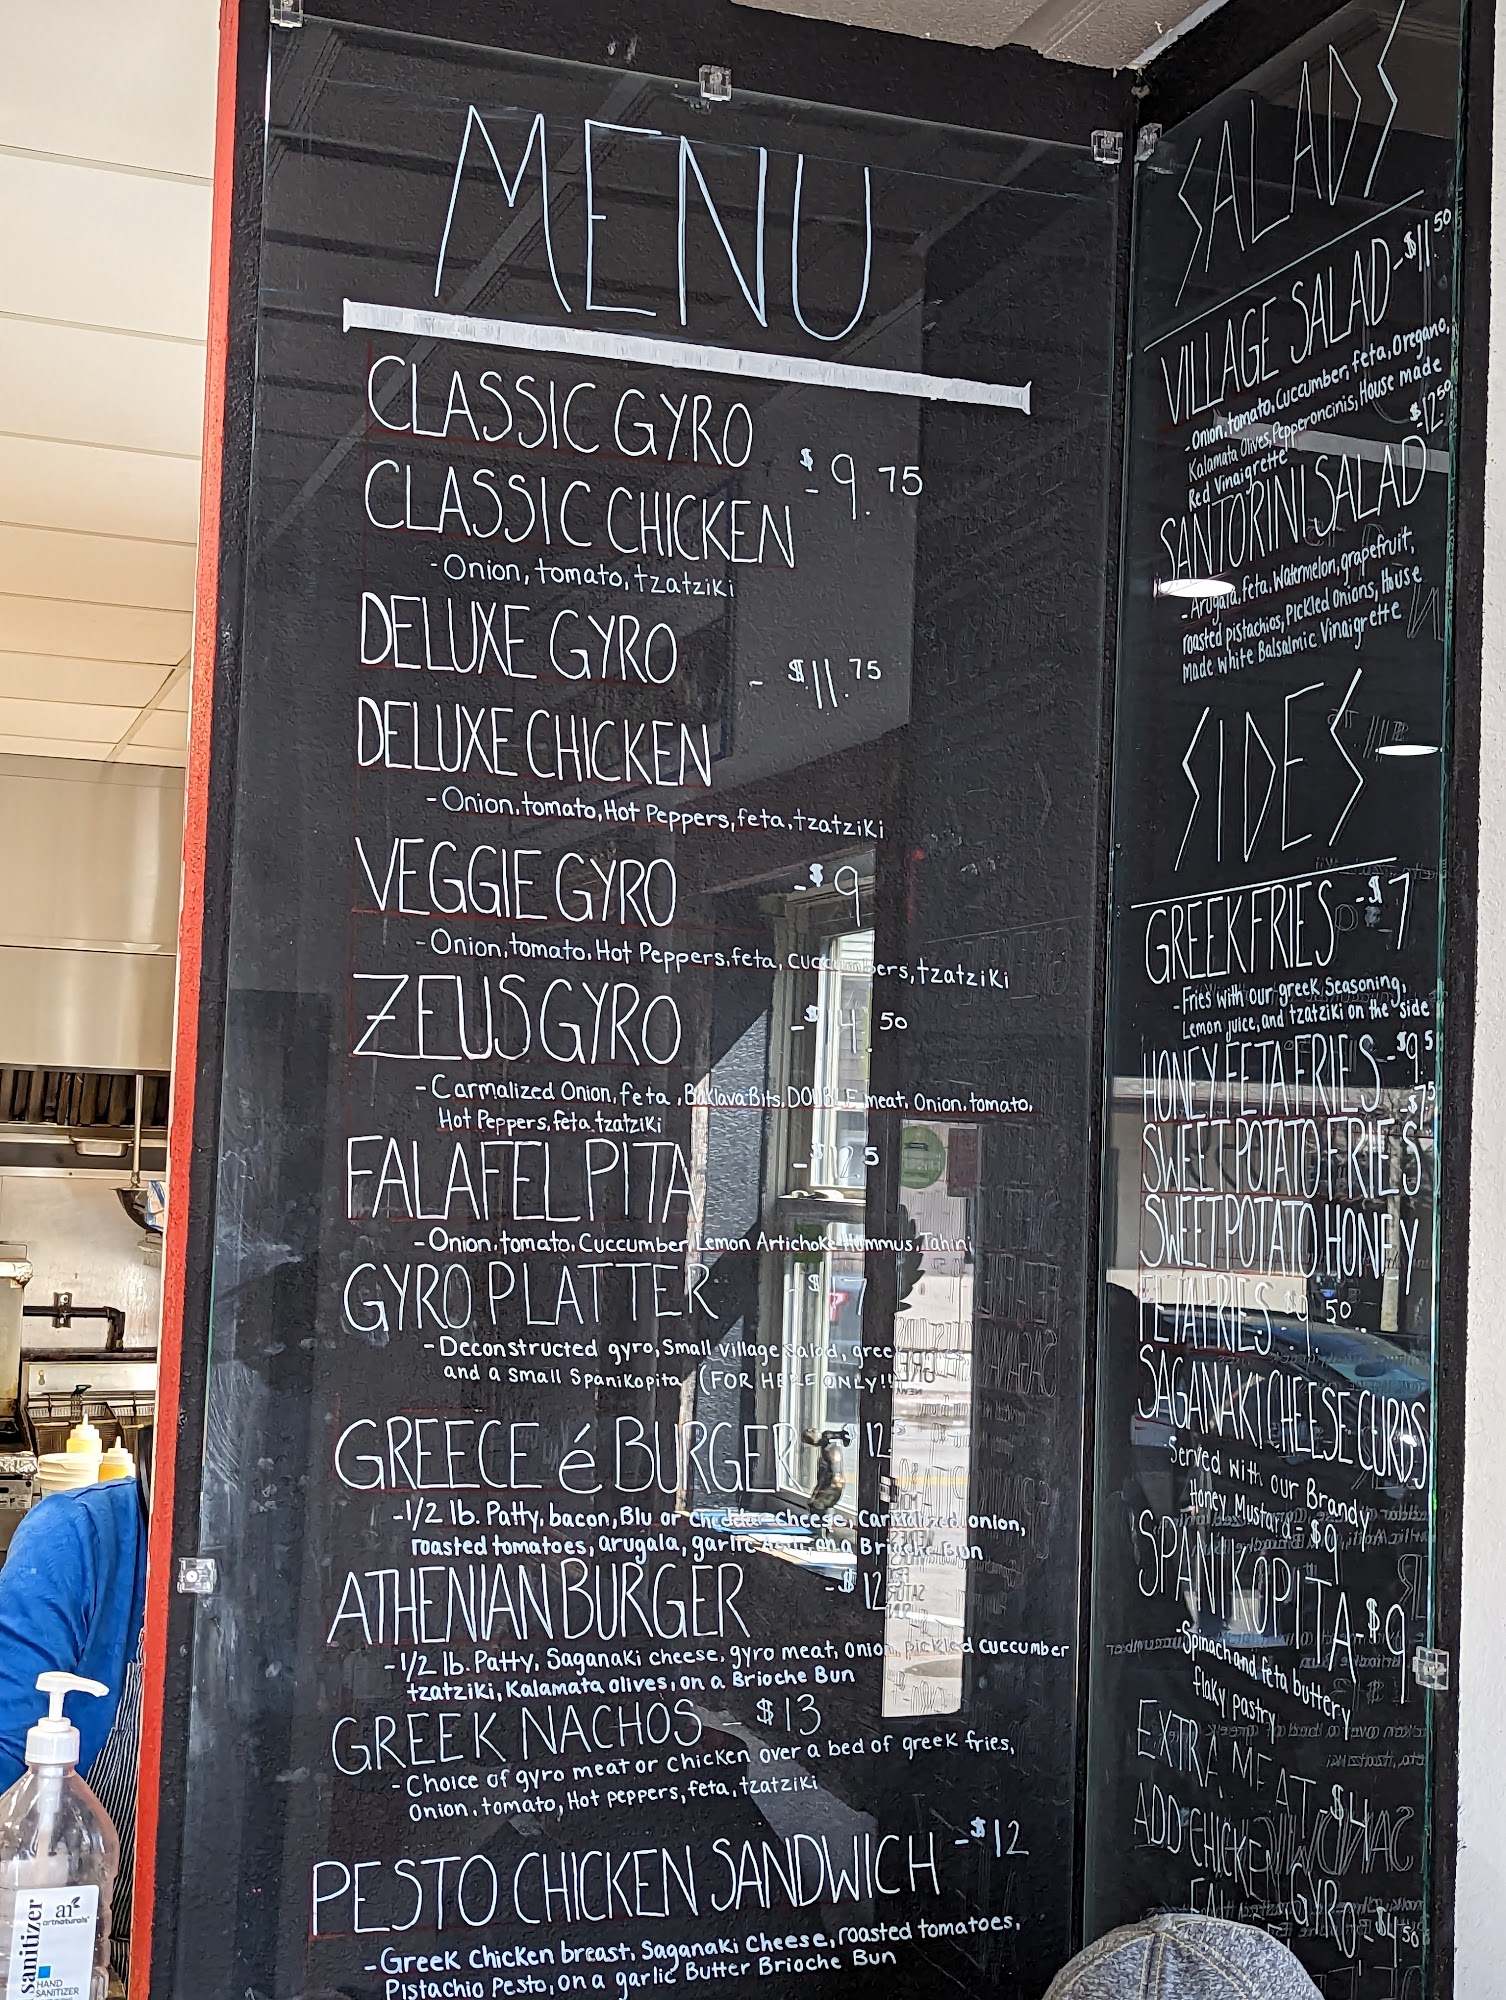 MENU
CLASSIC GYRO
CLASSIC CHICKEN - $9.75
- Onion, tomato, tzatziki
DELUXE GYRO
- $11.75
DELUXE CHICKEN
- Onion, tomato, Hot Peppers, feta, tzatziki
VEGGIE GYRO - $9
- Onion, tomato, Hot Peppers, feta, cuccumbers, tzatziki
ZEUS GYRO - $14.50
- Carmalized Onion, feta, Baklava Bits, DOUBLE meat, Onion, tomato,
Hot Peppers, feta, tzatziki
FALAFEL PITA
- Onion, tomato, Cuccumber, Lemon Artichoke Hummus, Tahini
GYRO PLATTER - $
- Deconstructed gyro, Small Village Salad,
and a small Spanikopita (FOR HERE ONLY!!)
GREECE é BURGER 12
- 1/2 lb. Patty, bacon, Blu or Cheddar Cheese, Carmalized onion,
roasted tomatoes, arugala, garlic Aoili, on a Brioche Bun
ATHENIAN BURGER - $12
- 1/2 lb. Patty, Saganaki cheese, gyro meat, onion, pickled cuccumber
tzatziki, Kalamata olives, on a Brioche Bun
GREEK NACHOS - $13
- Choice of gyro meat or chicken over a bed of greek fries,
Onion, tomato, Hot peppers, feta, tzatziki
PESTO CHICKEN SANDWICH - $12
- Greek Chicken breast, Saganaki Cheese, roasted tomatoes,
Pistachio Pesto, on a garlic Butter Brioche Bun
SALADS
VILLAGE SALAD - $11.50
- Onion, tomato, Cuccumber, feta, Oregano,
Kalamata Olives, Pepperoncinis, House made
Red Vinaigrette
$12.50
SANTORINI SALAD
- Arugala, feta, Watermelon, grapefruit,
roasted pistachios, Pickled onions, House
made white Balsalmic Vinaigrette
SIDES
GREEK FRIES - $7
- Fries with our greek seasoning,
Lemon juice, and tzatziki on the side
HONEY FETA FRIES - $9
SWEET POTATO FRIES
SWEET POTATO HONEY
FETA FRIES - $9.50
SAGANAKI CHEESE CURDS
Served with our Brandy
Honey Mustard - $9
SPANIKOPITA - $9
- Spinach and feta buttery
flaky pastry
EXTRA MEAT - $4
ADD CHICKEN
GYRO $4.50
sanitizer
ar
artnaturals
HAND
SANITIZER